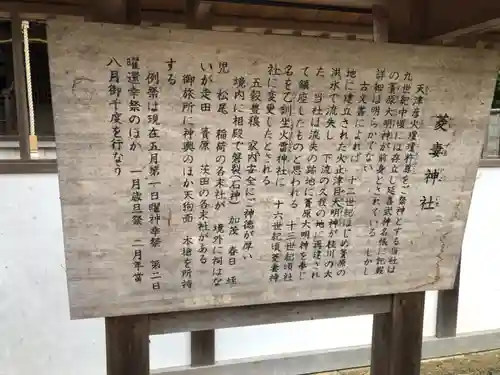 菱妻神社
天津彦火瓊瓊杵尊をご祭神とする当社は
九世紀中頃には存立し延喜式神名帳に記載
の簀原大明神が前身とされているが、しかし
詳細は明らかでない
古文書によれば、十二世紀はじめ簀原の
地に建立された火止津目大明神が桂川の大
洪水で流失し、下流の久我の地に再建され
た。当社は流失の跡地に簀原大明神を奉じ
て鎮座したものと思われる。十三世紀頃社
名を乙訓坐火雷神社に、十六世紀頃菱妻神
社に変更したとされる
五穀豊穣、家内安全にご神徳が厚い
境内に相殿で磐裂(石神)、加茂、春日、蛭
児、松尾、稲荷の各末社が、境外に祠はな
いが走田、簀原、茨田の各末社がある
御旅所に神輿のほか天狗面、木槍を所持
する
例祭は現在五月第一日曜神幸祭、第二日
曜還幸祭のほか、一月歳旦祭、二月年当
八月御千度を行なう